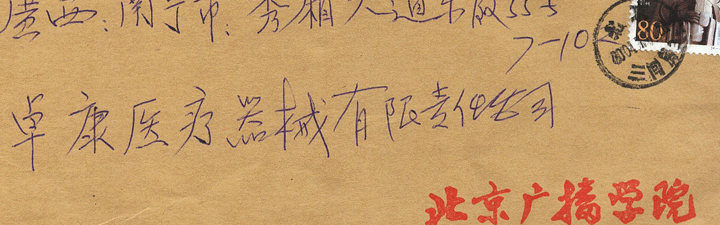 广西:南宁市:秀厢大道东段55号
7-10
80
卓康医疗器械有限责任公司
北京广播学院